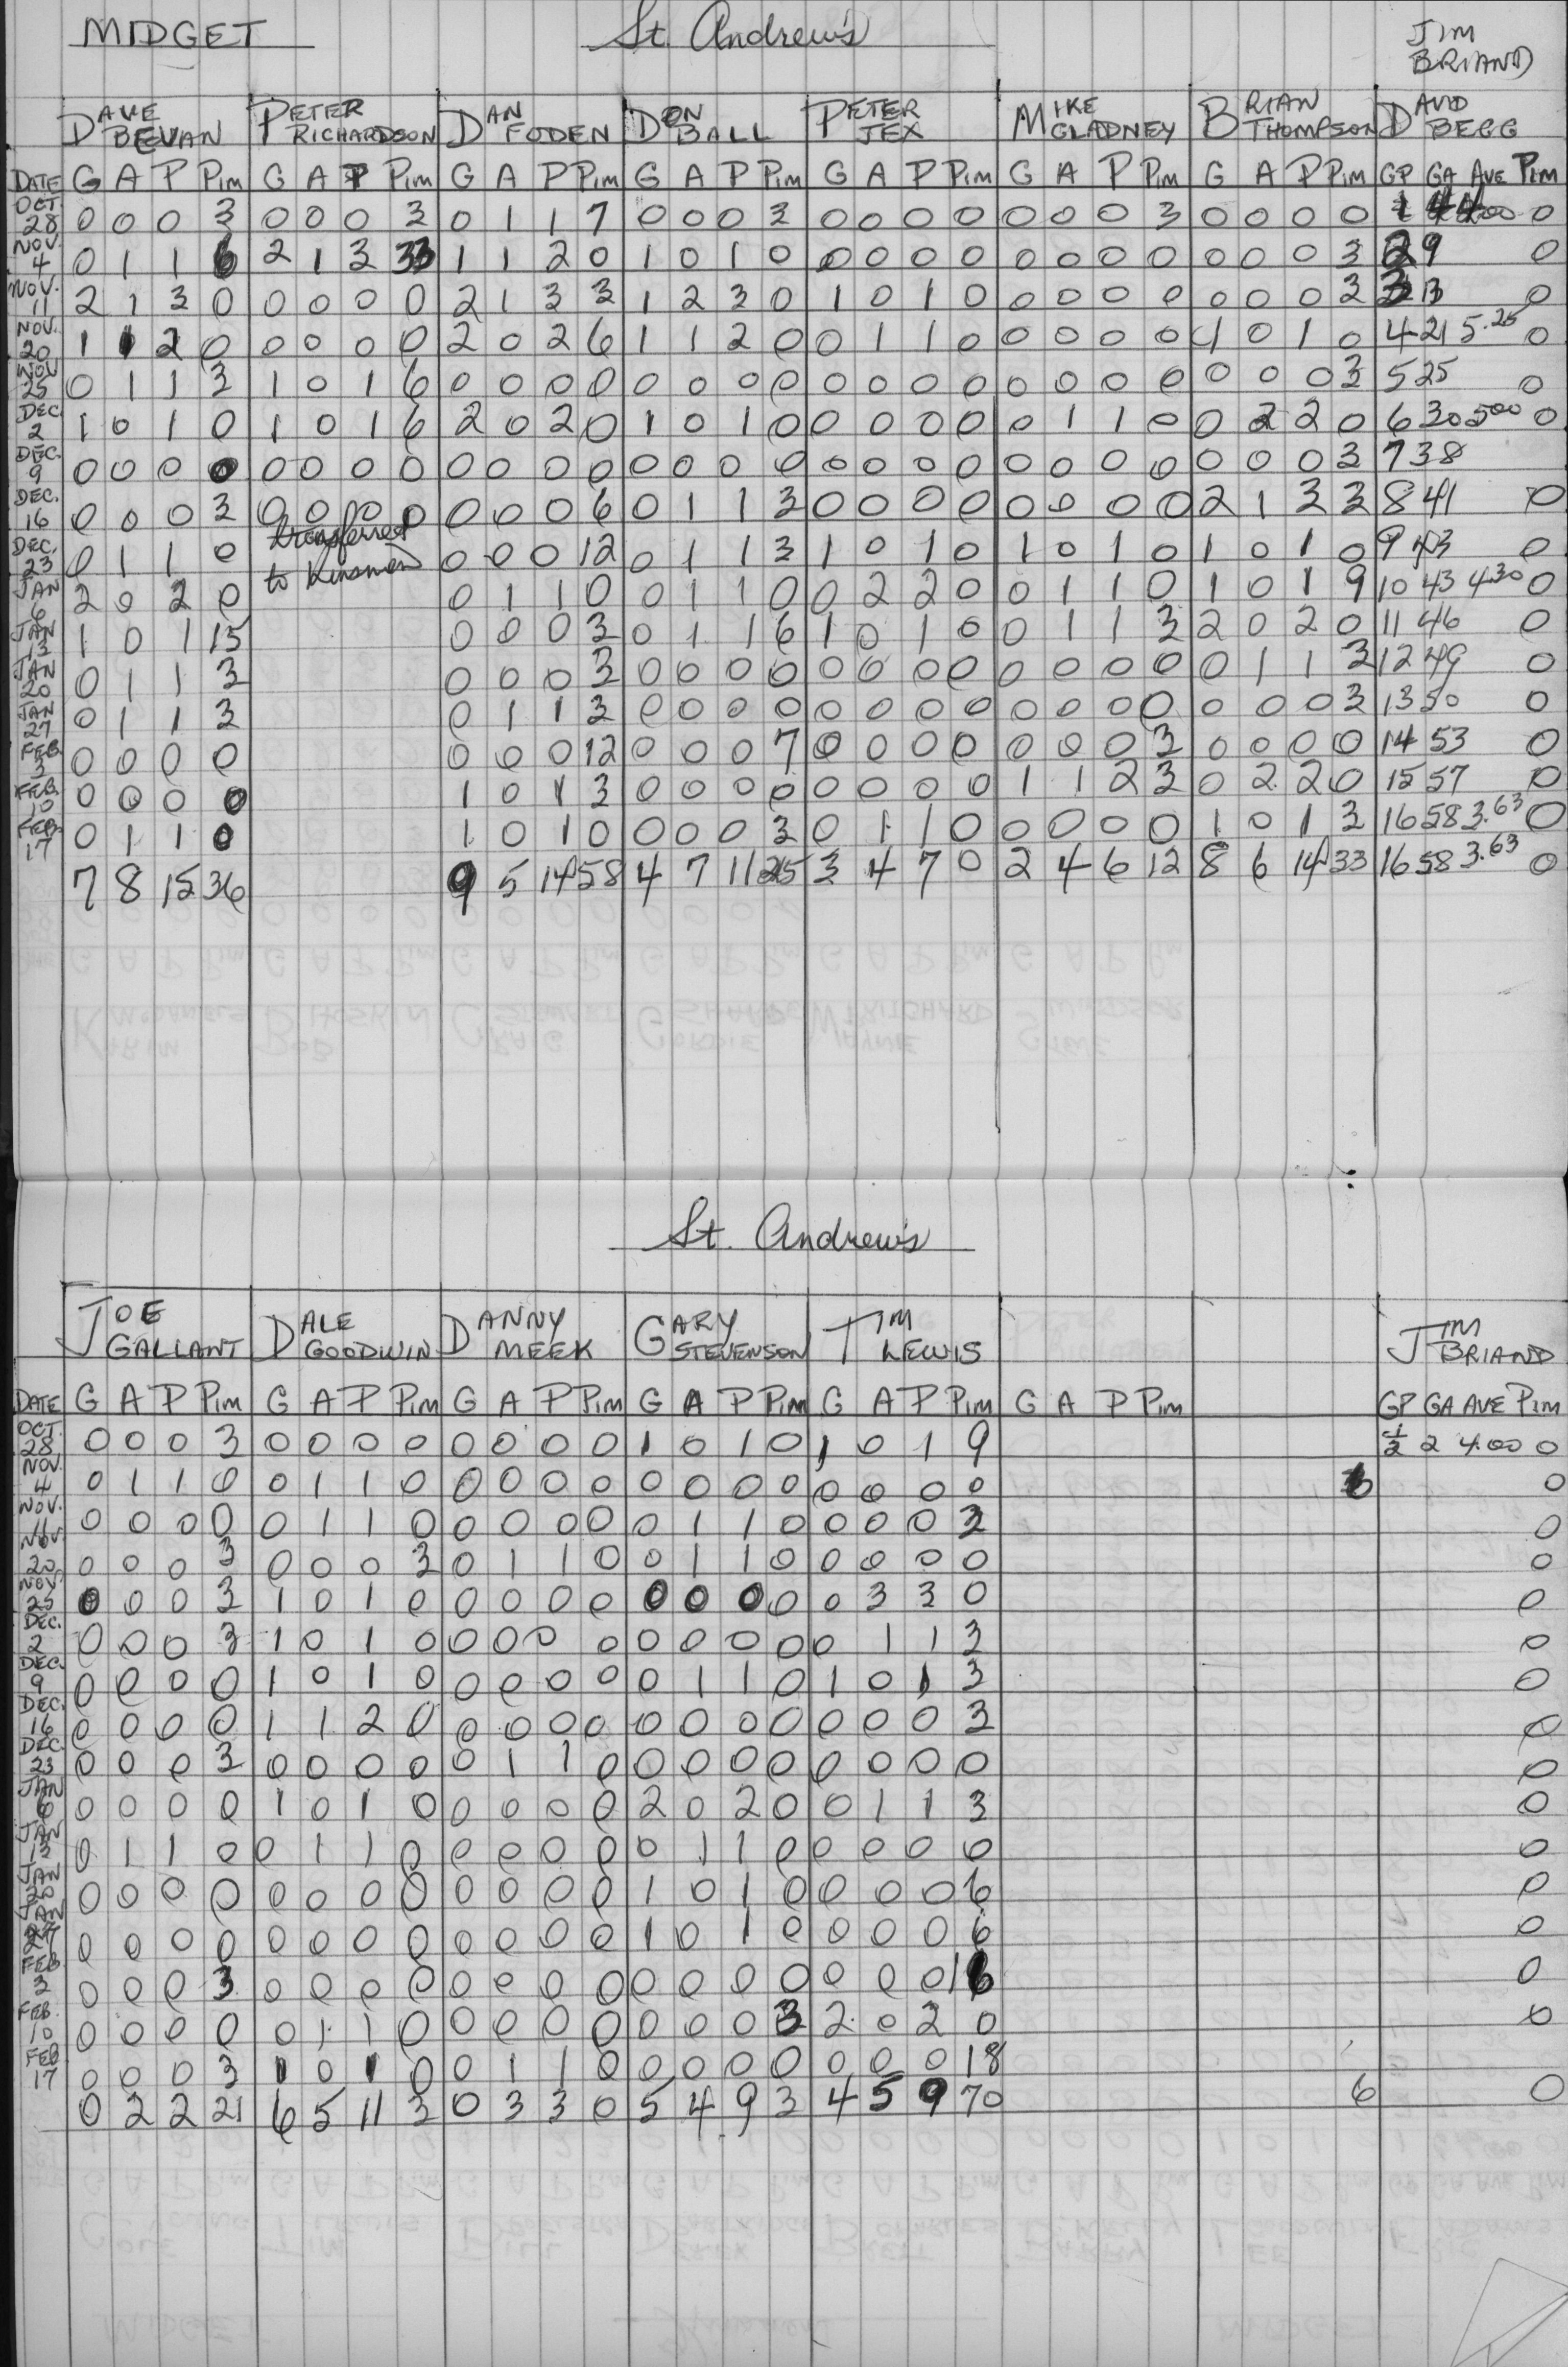 MIDGET St. Andrew's JIM BRIAND
DAVE BEVAN PETER RICHARDSON DAN FODEN DON BALL PETER JEX MIKE GLADNEY BRIAN THOMPSON DAVID BEGG
DATE G A P PIM G A P PIM G A P PIM G A P PIM G A P PIM G A P PIM G A P PIM GP GA AVE PIM
OCT. 28 0 0 0 3 0 0 0 3 0 1 1 7 0 0 0 3 0 0 0 0 0 0 0 3 0 0 0 0 1 4 4.00 0
NOV. 4 0 1 1 6 2 1 3 33 1 1 2 0 1 0 1 0 0 0 0 0 0 0 0 0 0 0 0 3 2 9 0
NOV. 11 2 1 3 0 0 0 0 0 2 1 3 3 1 2 3 0 1 0 1 0 0 0 0 0 0 0 0 3 3 13 0
NOV. 20 1 1 2 0 0 0 0 0 2 0 2 6 1 1 2 0 0 1 1 0 0 0 0 0 1 0 1 0 4 21 5.25 0
NOV 25 0 1 1 3 1 0 1 6 0 0 0 0 0 0 0 0 0 0 0 0 0 0 0 0 0 0 0 3 5 25 0
DEC 2 1 0 1 0 1 0 1 6 2 0 2 0 1 0 1 0 0 0 0 0 0 1 1 0 0 2 2 0 6 30 5.00 0
DEC. 9 0 0 0 0 0 0 0 0 0 0 0 0 0 0 0 0 0 0 0 0 0 0 0 0 0 0 0 3 7 38
DEC. 16 0 0 0 3 0 0 0 0 0 0 0 6 0 1 1 3 0 0 0 0 0 0 0 0 2 1 3 3 8 41 0
DEC. 23 0 1 1 0 transferred 0 0 0 12 0 1 1 3 1 0 1 0 1 0 1 0 1 0 1 0 9 43 0
JAN 6 2 0 2 0 to Kinsmen 0 1 1 0 0 1 1 0 0 2 2 0 0 1 1 0 1 0 1 9 10 43 4.30 0
JAN 13 1 0 1 15 0 0 0 3 0 1 1 6 1 0 1 0 0 1 1 3 2 0 2 0 11 46 0
JAN 20 0 1 1 3 0 0 0 3 0 0 0 0 0 0 0 0 0 0 0 0 0 1 1 3 12 49 0
JAN 27 0 1 1 3 0 1 1 3 0 0 0 0 0 0 0 0 0 0 0 0 0 0 0 3 13 50 0
FEB. 3 0 0 0 0 0 0 0 12 0 0 0 7 0 0 0 0 0 0 0 3 0 0 0 0 14 53 0
FEB. 10 0 0 0 0 1 0 1 3 0 0 0 0 0 0 0 0 1 1 2 3 0 2 2 0 15 57 0
FEB. 17 0 1 1 0 1 0 1 0 0 0 0 3 0 1 1 0 0 0 0 0 1 0 1 3 16 58 3.63 0
7 8 15 36 9 5 14 58 4 7 11 25 3 4 7 0 2 4 6 12 8 6 14 33 16 58 3.63 0
St. Andrew's
JOE GALLANT DALE GOODWIN DANNY MEEK GARY STEVENSON TIM LEWIS JIM BRIAND
DATE G A P PIM G A P PIM G A P PIM G A P PIM G A P PIM G A P PIM GP GA AVE PIM
OCT. 28 0 0 0 3 0 0 0 0 0 0 0 0 1 0 1 0 1 0 1 9 1/2 2 4.00 0
NOV. 4 0 1 1 0 0 1 1 0 0 0 0 0 0 0 0 0 0 0 0 0 0
NOV. 11 0 0 0 0 0 1 1 0 0 0 0 0 0 1 1 0 0 0 0 3 0
NOV. 20 0 0 0 3 0 0 0 3 0 1 1 0 0 1 1 0 0 0 0 0 0
NOV. 25 0 0 0 3 1 0 1 0 0 0 0 0 0 0 0 0 0 3 3 0 0
DEC. 2 0 0 0 3 1 0 1 0 0 0 0 0 0 0 0 0 0 1 1 3 0
DEC. 9 0 0 0 0 1 0 1 0 0 0 0 0 0 1 1 0 1 0 1 3 0
DEC. 16 0 0 0 0 1 1 2 0 0 0 0 0 0 0 0 0 0 0 0 3 0
DEC. 23 0 0 0 3 0 0 0 0 0 1 1 0 0 0 0 0 0 0 0 0 0
JAN 6 0 0 0 0 1 0 1 0 0 0 0 0 2 0 2 0 0 1 1 3 0
JAN 13 0 1 1 0 0 1 1 0 0 0 0 0 0 1 1 0 0 0 0 0 0
JAN 20 0 0 0 0 0 0 0 0 0 0 0 0 1 0 1 0 0 0 0 6 0
JAN 27 0 0 0 0 0 0 0 0 0 0 0 0 1 0 1 0 0 0 0 6 0
FEB 3 0 0 0 3 0 0 0 0 0 0 0 0 0 0 0 0 0 0 0 16 0
FEB. 10 0 0 0 0 0 1 1 0 0 0 0 0 0 0 0 3 2 0 2 0 0
FEB 17 0 0 0 3 1 0 1 0 0 1 1 0 0 0 0 0 0 0 0 18
0 2 2 21 6 5 11 3 0 3 3 0 5 4 9 3 4 5 9 70 6 0